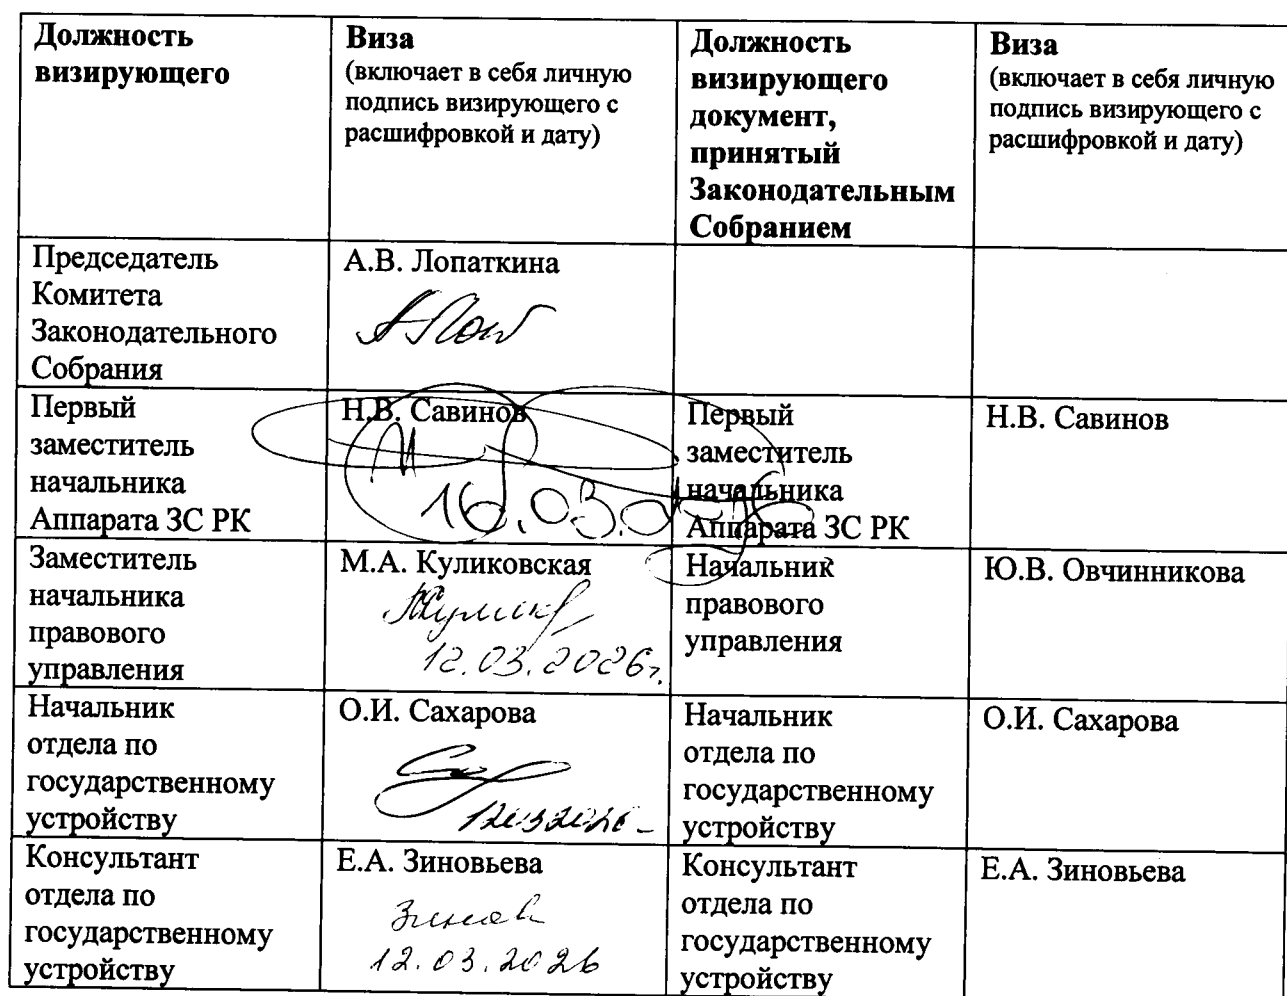 Должность
визирующего
Виза
(включает в себя личную
подпись визирующего с
расшифровкой и дату)
Должность
визирующего
документ,
принятый
Законодательным
Собранием
Виза
(включает в себя личную
подпись визирующего с
расшифровкой и дату)
Председатель
Комитета
Законодательного
Собрания
А.В. Лопаткина
Первый
заместитель
начальника
Аппарата ЗС РК
Н.В. Савинов
16.03.
Первый
заместитель
начальника
Аппарата ЗС РК
Н.В. Савинов
Заместитель
начальника
правового
управления
М.А. Куликовская
12.03.2026г.
Начальник
правового
управления
Ю.В. Овчинникова
Начальник
отдела по
государственному
устройству
О.И. Сахарова
12032026
Начальник
отдела по
государственному
устройству
О.И. Сахарова
Консультант
отдела по
государственному
устройству
Е.А. Зиновьева
12.03.2026
Консультант
отдела по
государственному
устройству
Е.А. Зиновьева